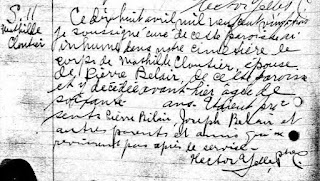 Hector Yelle ptre
S. 11
Mathilde
Cloutier
Ce dix huit avril mil neuf cent vingt trois
je soussigné curé de cette paroisse ai
inhumé dans notre cimetière le
corps de Mathilde Cloutier, épouse
de Pierre Belair, de cette paroisse
et y décédée avant hier agée de
soixante ans. Etaient pré
sents Pierre Belair, Joseph Belair et
autres parents et amis qui ne
reviennent pas après le service
Hector Yelle ptre